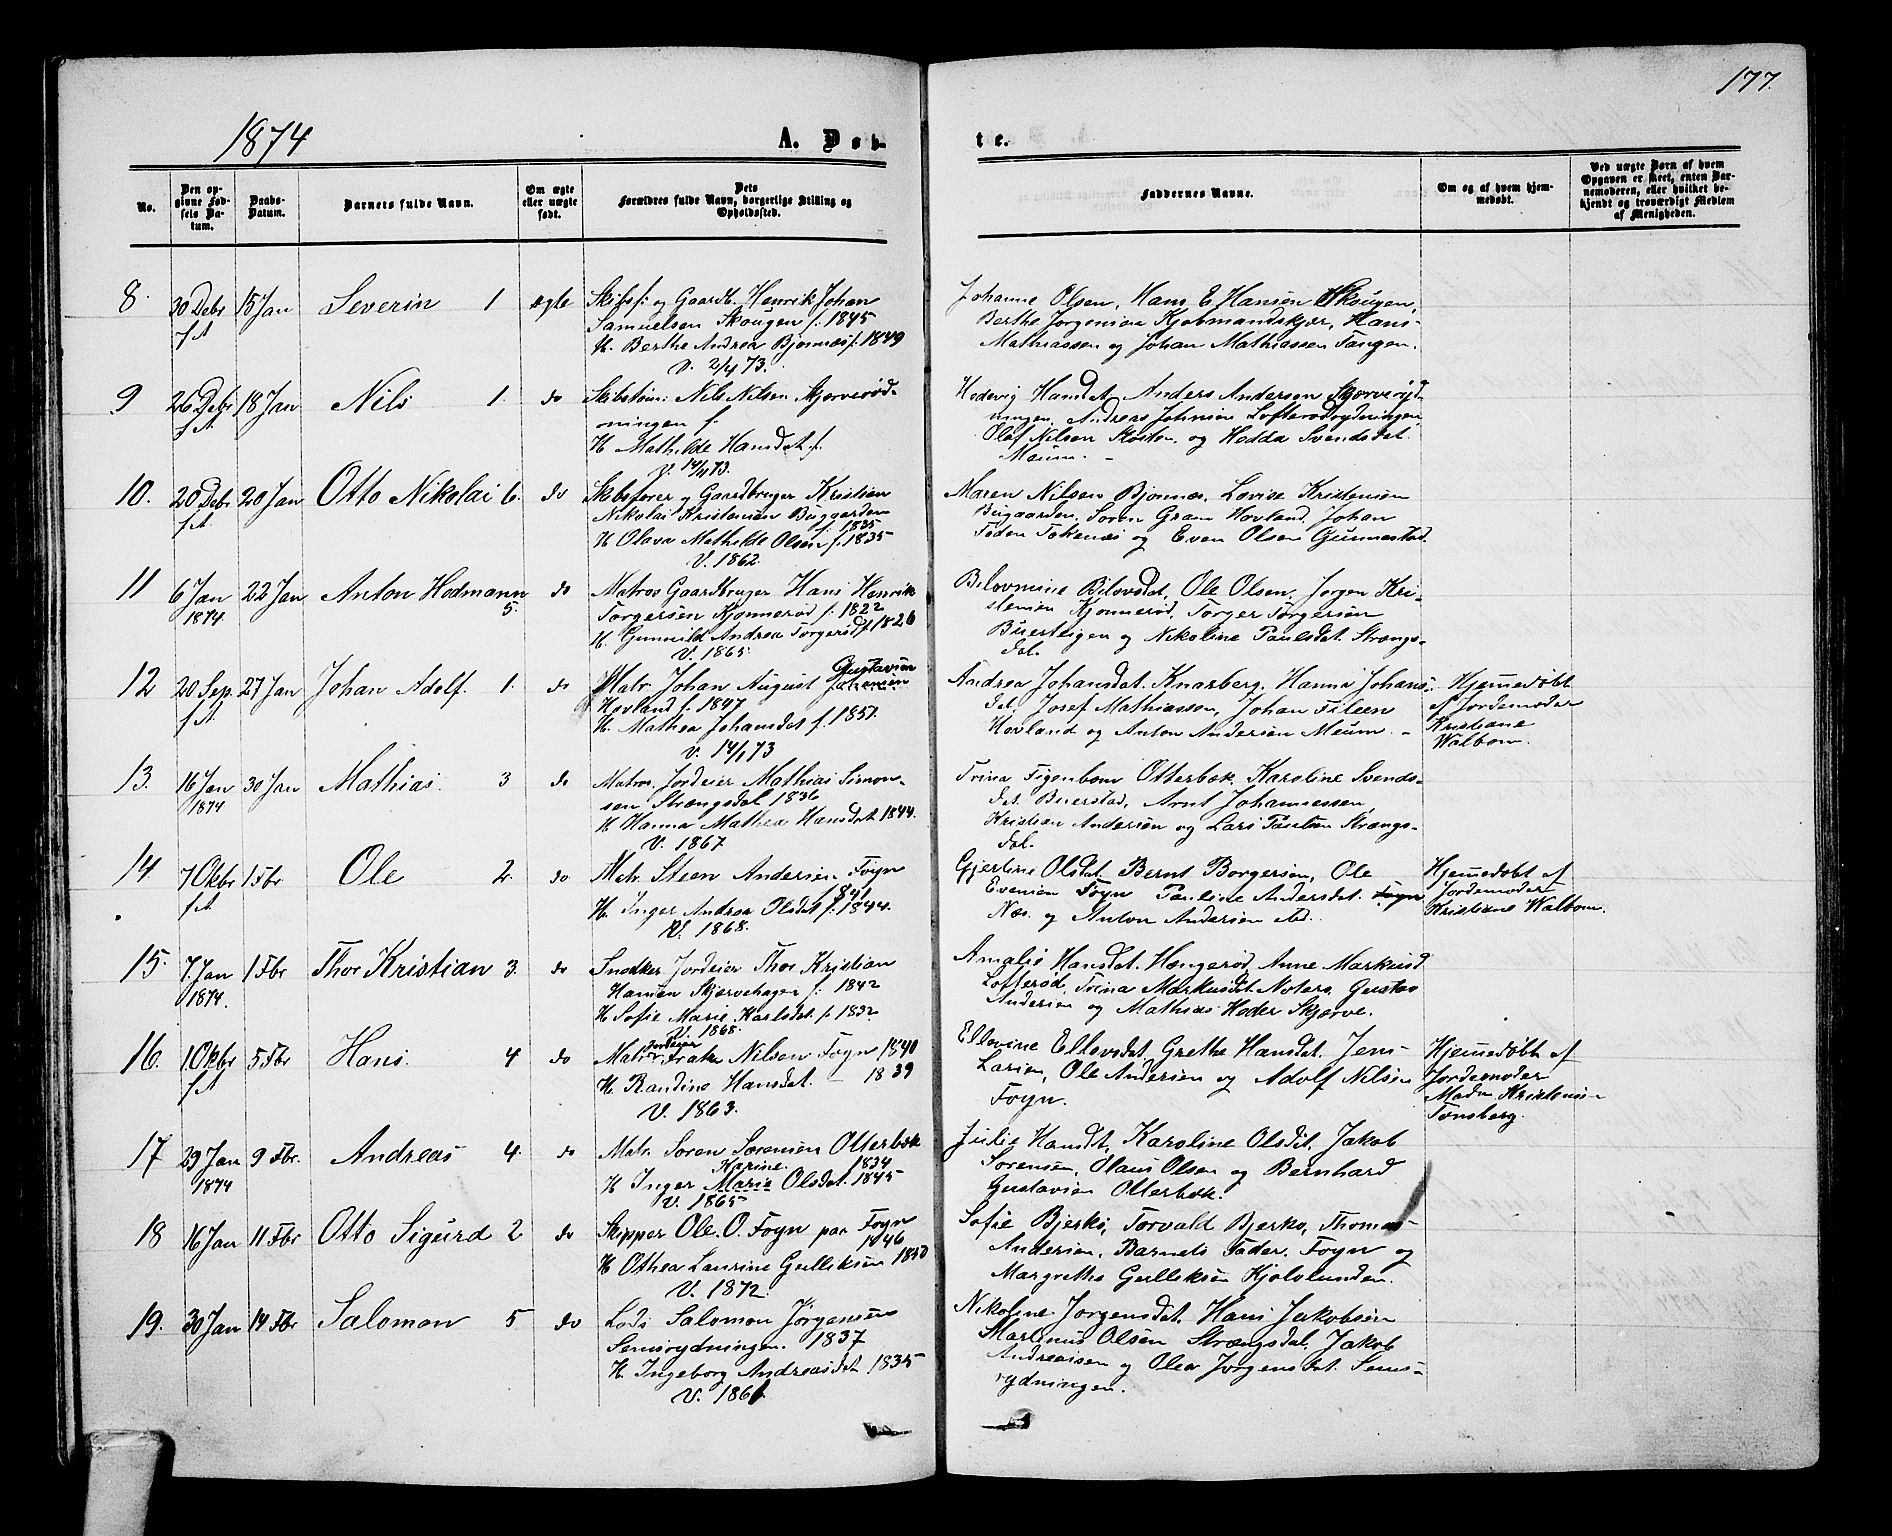 177.
1874 A. Døb-
te.
No.
Den op-
givne Fød-
sels Da-
tum.
Daabs-
Datum.
Barnets fulde Navn.
Om ægte
eller uægte
født.
Dets
Forældres fulde Navn, borgerlige Stilling og
Opholdssted.
Faddernes Navne.
Om og af hvem hjem-
medøbt.
Ved uægte Barn af hvem
Opgaven er skeet, enten Bar-
nemoderen, eller hvilket be-
kjendt og troværdigt Medlem
af Menigheden.
8. 30 Debr 15 Jan Severin 1 ægte
f A
Skibsf. og Gaardb. Henrik Johan
Samuelsen Skougen f. 1845
H. Berthe Andrea Bjønnæs f. 1849
V. 2/4 73.
Johanne Olsen, Hans E. Hansen Skougen,
Berthe Jørgensen Kjøbmandskjær, Hans
Mathiassen og Johan Mathiassen Tangen.
9 26 Debr 18 Jan Nils 1. do
f A
Skibstøm. Nils Nilsen Skjærverød-
ningen f.
H. Mathilde Hansdat. f.
V. 14/4 73.
Hedevig Hansdat. Anders Andersen Skjærveryd-
ningen, Andreas Johnsen Lofterødrydningen,
Olaf Nilsen Støsten og Hodda Svendsdat.
Meum. -
10. 20 Debr 20 Jan Otto Nikolai 6. do
f A
Skibsfører og Gaardbruger Kristian
Nikolai Kristensen Buggarden
f. 1835
H. Olava Mathilde Olsen f. 1835
V. 1862.
Maren Nilsen Bjønnæs, Lovise Kristensen
Bugaarden, Søren Gram Hovland, Johan
Foden Tokenæs og Even Olsen Gunnestad.
11 6 Jan 22 Jan Anton Hodmann do
1874. 5.
Matros Gaardbruger Hans Henrik
Torgersen Kjønnerød f. 1822
H. Gunnild Andrea Torgersd. f. 1826
V. 1865.
Ole Olsen, Jørgen Kri-
stensen Kjønnerød, Torger Torgersen
Buersteigen og Nikoline Paulsdat. Strængs-
dal.
12 20 Sep. 27 Jan Johan Adolf. 1. do
f A
Matr. Johan August Gustavsen
Hovland f. 1847
H. Mathea Johansdat f. 1851.
V. 14/1 73
Andrea Johansdat. Knarberg, Hanna Johans-
dat. Josef Mathiassen, Johan Fileen
Hovland og Anton Andersen Meum. -
Hjemmedøbt
af Jordemoder
Kristiane
Walbom.
13. 16 Jan 30 Jan Mathias. 3 do
1874
Matros. Jordeier Mathias Simon-
sen Strængsdal 1836
H. Hanna Mathea Hansdat 1844.
V. 1867
Trina Figenbom Otterbæk, Karoline Svends-
dat. Buerstad, Arnt Johannessen,
Kristian Andersen og Lars Paulsen Strængs-
dal.
14 7 Okbr 1 Fbr Ole 2. do
f A
Matr. Steen Andersen Foyn
1841
H. Inger Andrea Olsdat f. 1844.
V. 1868.
Gjertine Olsdat. Bernt Borgersen, Ole
Evensen Foyn Pauline Andersdat. Foyn
Næs. og Anton Andersen
Hjemmedøbt af
Jordemoder
Kristiane Walbom.
15. 7. Jan 1 Fbr Thor Kristian 3. do
1874.
Snedker Jordeier Thor Kristian
Hansen Skjærvehagen f. 1842
H. Sofie Marie Karlsdat. f. 1832
V. 1868.
Amalie Hansdat. Hængerød, Anne Markusd
Lofterød, Trina Markusdat. Noterø, Gustav
Andersen og Mathias Hoder Skjærve.
16. 1. Okbr 5 Fbr Hans. 4 do
f A
Jordeier
Matr. Nilsen Foyn 1840
H. Randine Hansdat. - 1839
V. 1863.
Ellevine Ellevsdat. Grethe Hansdat. Jens
Larsen, Ole Andersen og Adolf Nilsen
Foyn.
Hjemmedøbt af
Jordemoder
Mada Kristensen
Tønsberg.
17 29 Jan 9 Fbr. Andreas 4. do
1874
Matr. Søren Sørensen Otterbæk
Karine. 1834
H Inger Marie Olsdat. 1845
V. 1865
Julie Hansdt, Karoline Olsdt. Jakob
Sørensen, Claus Olsen og Bernhard
Gustavsen Otterbæk.
18 16 Jan 11 Fbr Otto Sigurd 2 do
Skipper Ole. O. Foyn paa Foyn
1846
H Othea Laurine Gulliksen 1850
V. 1872.
Sofie Bjerkø, Torvald Bjerkø, Thomas
Andersen, Barnets Fader, Foyn og
Margrethe Gulliksen Kjølolunden.
19. 30 Jan 14 Fbr Salomon 5 do
Lods Salomon Jørgensen
Semsrydningen. 1837
H. Ingeborg Andreasdat. 1835
V. 1861
Nikoline Jørgensdat. Hans Jakobsen
Martinus Olsen Strængsdal, Jakob
Andreassen og Olea Jørgensdat. Sems-
rydningen.